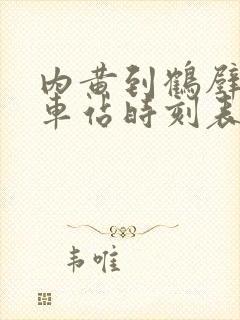 内黄到鹤壁
车站时刻表
韦唯